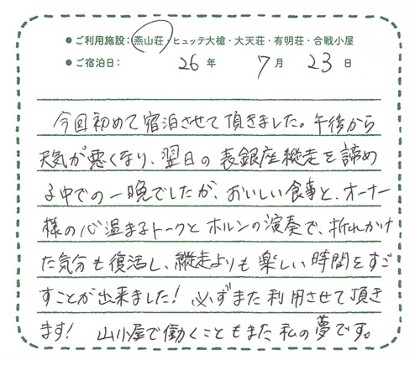 ●ご利用施設：燕山荘・ヒュッテ大槍・大天荘・有明荘・合戦小屋
●ご宿泊日： 26 年 7 月 23 日
今回初めて宿泊させて頂きました。午後から
天気が悪くなり、翌日の表銀座縦走を諦め
る中での一晩でしたが、おいしい食事と、オーナー
様の心温まるトークとホルンの演奏で、折れかけ
た気分も復活し、縦走よりも楽しい時間をすご
すことが出来ました！必ずまた利用させて頂き
ます！ 山小屋で働くこともまた私の夢です。